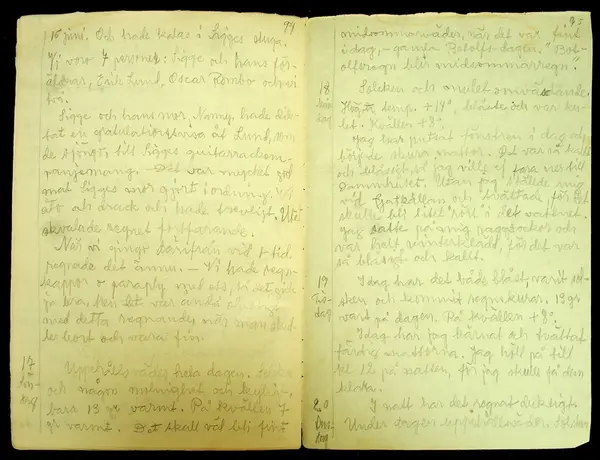 94
16 juni. Och hade kalas i Sigges stuga.
Vi voro 7 personer: Sigge och hans för-
äldrar, Erik Lund, Oscar Rombo och vi
två.
Sigge och hans mor, Nanny, hade dik-
tat en gratulationsvisa åt Lund, som
de sjöngo, till Sigges guitarrackom-
panjemang. — Det var mycket god
mat Sigges mor gjort i ordning. Vi
åto och drack och hade trevligt. Ute
skvalade regnet fortfarande.
När vi gingo därifrån vid 1 tid.
regnade det ännu. — Vi hade regn-
kappor o paraply med oss, så det gick
ju bra, men det var ändå
med detta regnande, när man skul-
le bort och vara fin.
17
Uppehållsväder hela dagen.
och någon molnighet och kyligt,
bara 13 gr varmt. På kvällen 7
gr varmt. Det skall väl bli fint
95
midsommarväder, när det var fint
i dag, – gamla Botolfs-dagen. "Bot-
olferegn blir midsommarregn."
18
Solsken och mulet omväxlande.
Högst temp. +14°, blåste och var ku-
let. Kvällen +8°.
Jag har putsat fönstren i dag och
börjde skura mattor. Det var så kallt
och blåsigt, så jag ville ej fara ner till
Dammhavet. Utan jag ställde mig
vid och tvättade, för det
skulle bli litet rört i det vattenet.
Jag satte på mig pagsockor och
var halvt vinterklädd, för det var
så blåsigt och kallt.
19
Tis-
dag
Idag har det både blåst, varit sol-
sken och kommit regnskurar. 13 gr
varmt på dagen. På kvällen +8°.
Idag har jag bårnat och tvättat
färdig mattorna. Jag höll på till
kl. 12 på natten, för jag skulle på dem
klara.
20
Ons-
dag
I natt har det regnat duktigt.
Under dagen uppehållsväder. Solsken